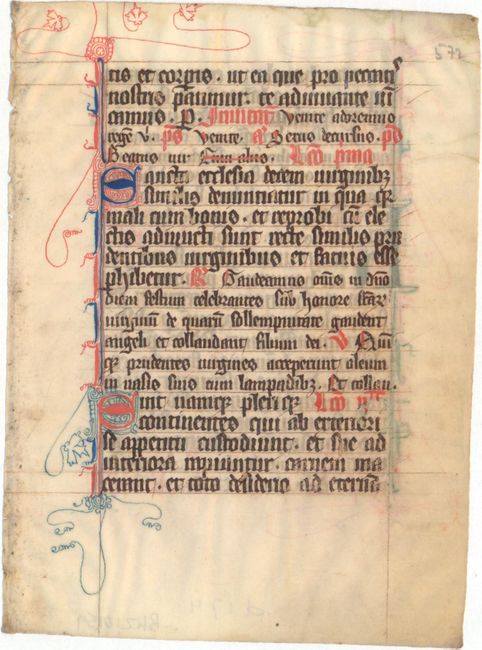 572
tis et corpis . ut ea que pro peccatis
nostris patimur . te adiuvante vin
camus . P. Invitat Venite adoremus
regem v. ps Venite . a Secus decursus . ps
Beatus vir Lco pma
Sancta ecclesia decem virginibz
similis denunciatur in qua qz
mali cum bonis . et reprobi cu ele
ctis admixti sunt recte similis pru
dentibus virginibus et fatuis esse
phibetur . R Gaudeamus oms in dno
diem festum celebrantes sub honore
virginum de quaru sollempnitate gaudent
angeli et collaudant filium dei . V Quinqz
prudentes virgines acceperunt oleum
in vasis suis cum lampadibz . Et collau .
Sunt namque pleriqz Lco
continentes qui ab exteriori
se appetitu custodiunt . et spe ad
interiora rapiuntur . carnem ma
cerant . et toto desiderio ad eternam